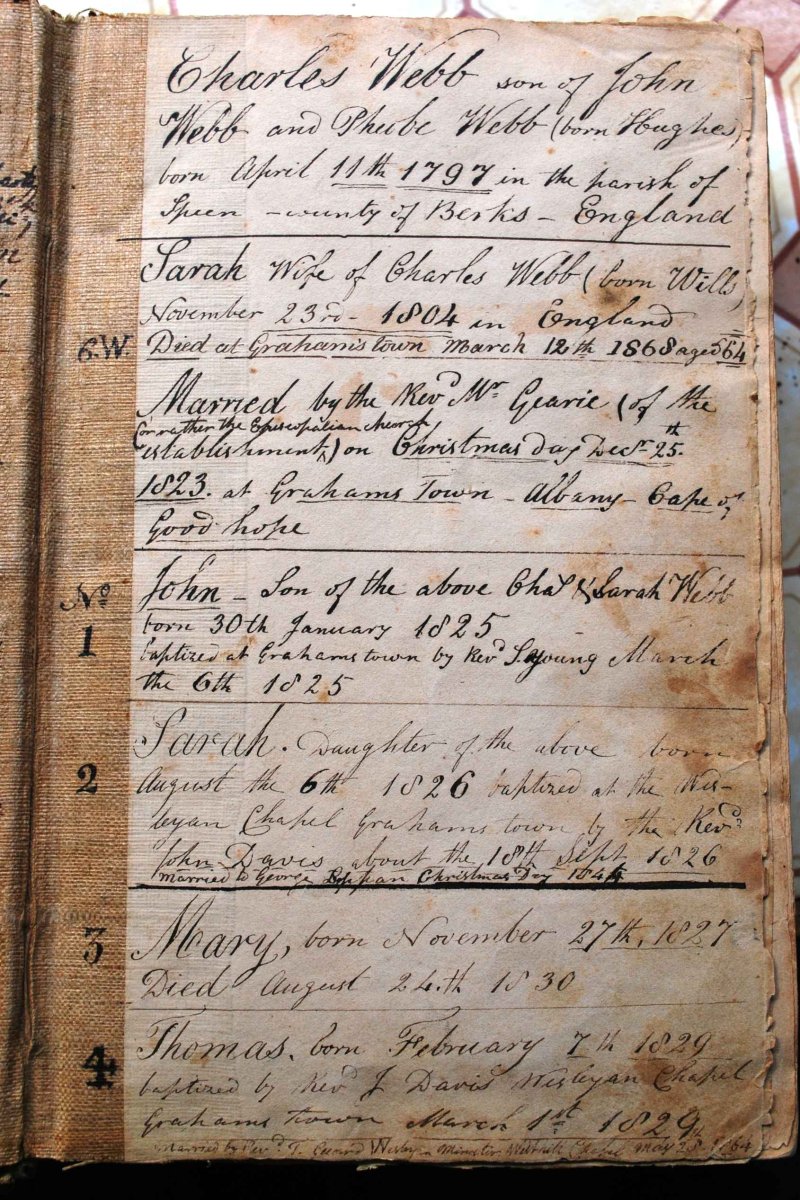 Charles Webb son of John
Webb and Phœbe Webb (born Hughes)
born April 11th 1797 in the parish of
Speen - county of Berks - England
Sarah Wife of Charles Webb (born Wills)
November 23rd - 1804 in England
6.W. Died at Graham's town March 12th 1868 aged 64
Married by the Revd Mr Gearie (of the
(or rather the Episcopalian church
establishment) on Christmas day Decr 25th
1823. at Grahams Town - Albany - Cape of
Good hope
No John - Son of the above Chas & Sarah Webb
1 born 30th January 1825
baptized at Grahams town by Revd S. Young March
the 6th 1825
Sarah. Daughter of the above born
2 August the 6th 1826 baptized at the Wes-
leyan Chapel Grahams town by the Revd
John Davis about the 18th Sept 1826
married to George Christmas Day
3 Mary, born November 27th, 1827
Died August 24th 1830
4 Thomas. born February 7th 1829
baptized by Revd J Davis Wesleyan Chapel
Grahams Town March 1st 1829
Married by Revd T. Wesleyan Minister Chapel May 28 1864